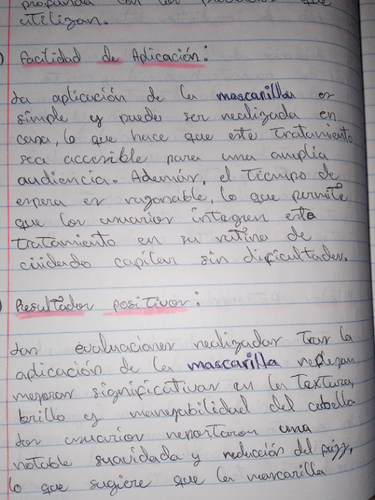 profunda con los productos que
utilizan.
) Facilidad de Aplicación:
La aplicación de la mascarilla es
simple y puede ser realizada en
casa, lo que hace que este tratamiento
sea accesible para una amplia
audiencia. Además, el tiempo de
espera es razonable, lo que permite
que los usuarios integren este
tratamiento en su rutina de
cuidado capilar sin dificultades.
) Resultados positivos:
Las evaluaciones realizadas tras la
aplicación de la mascarilla reflejan
mejoras significativas en la textura,
brillo y manejabilidad del cabello
Los usuarios reportaron una
notable suavidad y reducción del frizz,
lo que sugiere que la mascarilla